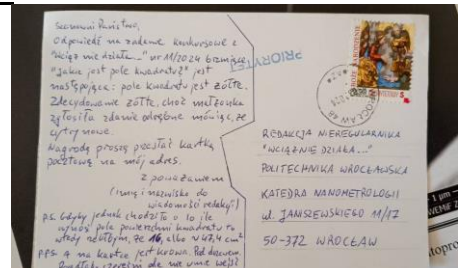 Szanowni Państwo,
Odpowiedź na zadanie konkursowe z
"Wciąż nie działa..." nr 11/2024 brzmiące
"Jakie jest pole kwadratu?" jest
następująca: pole kwadratu jest żółte.
Zdecydowanie żółte, choć małżonka
zgłosiła zdanie odrębne mówiąc, że
cytrynowe.
Nagrodę proszę przesłać kartką
pocztową na mój adres.
Z poważaniem
(imię i nazwisko do
wiadomości redakcji)
P.S. Gdyby jednak chodziło o to ile
wynosi pole powierzchni kwadratu to
wtedy
że 16, albo ~ 47,4 cm²
PPS. A na kartce jest krowa. Pod drzewem.
PRIORYTET
BOŻE NARODZENIE
WROCŁAW 68
REDAKCJA NIEREGULARNIKA
"WCIĄŻ NIE DZIAŁA..."
POLITECHNIKA WROCŁAWSKA
KATEDRA NANOMETROLOGII
ul. JANISZEWSKIEGO 11/17
50-372 WROCŁAW
1 pm
WEMIF Z